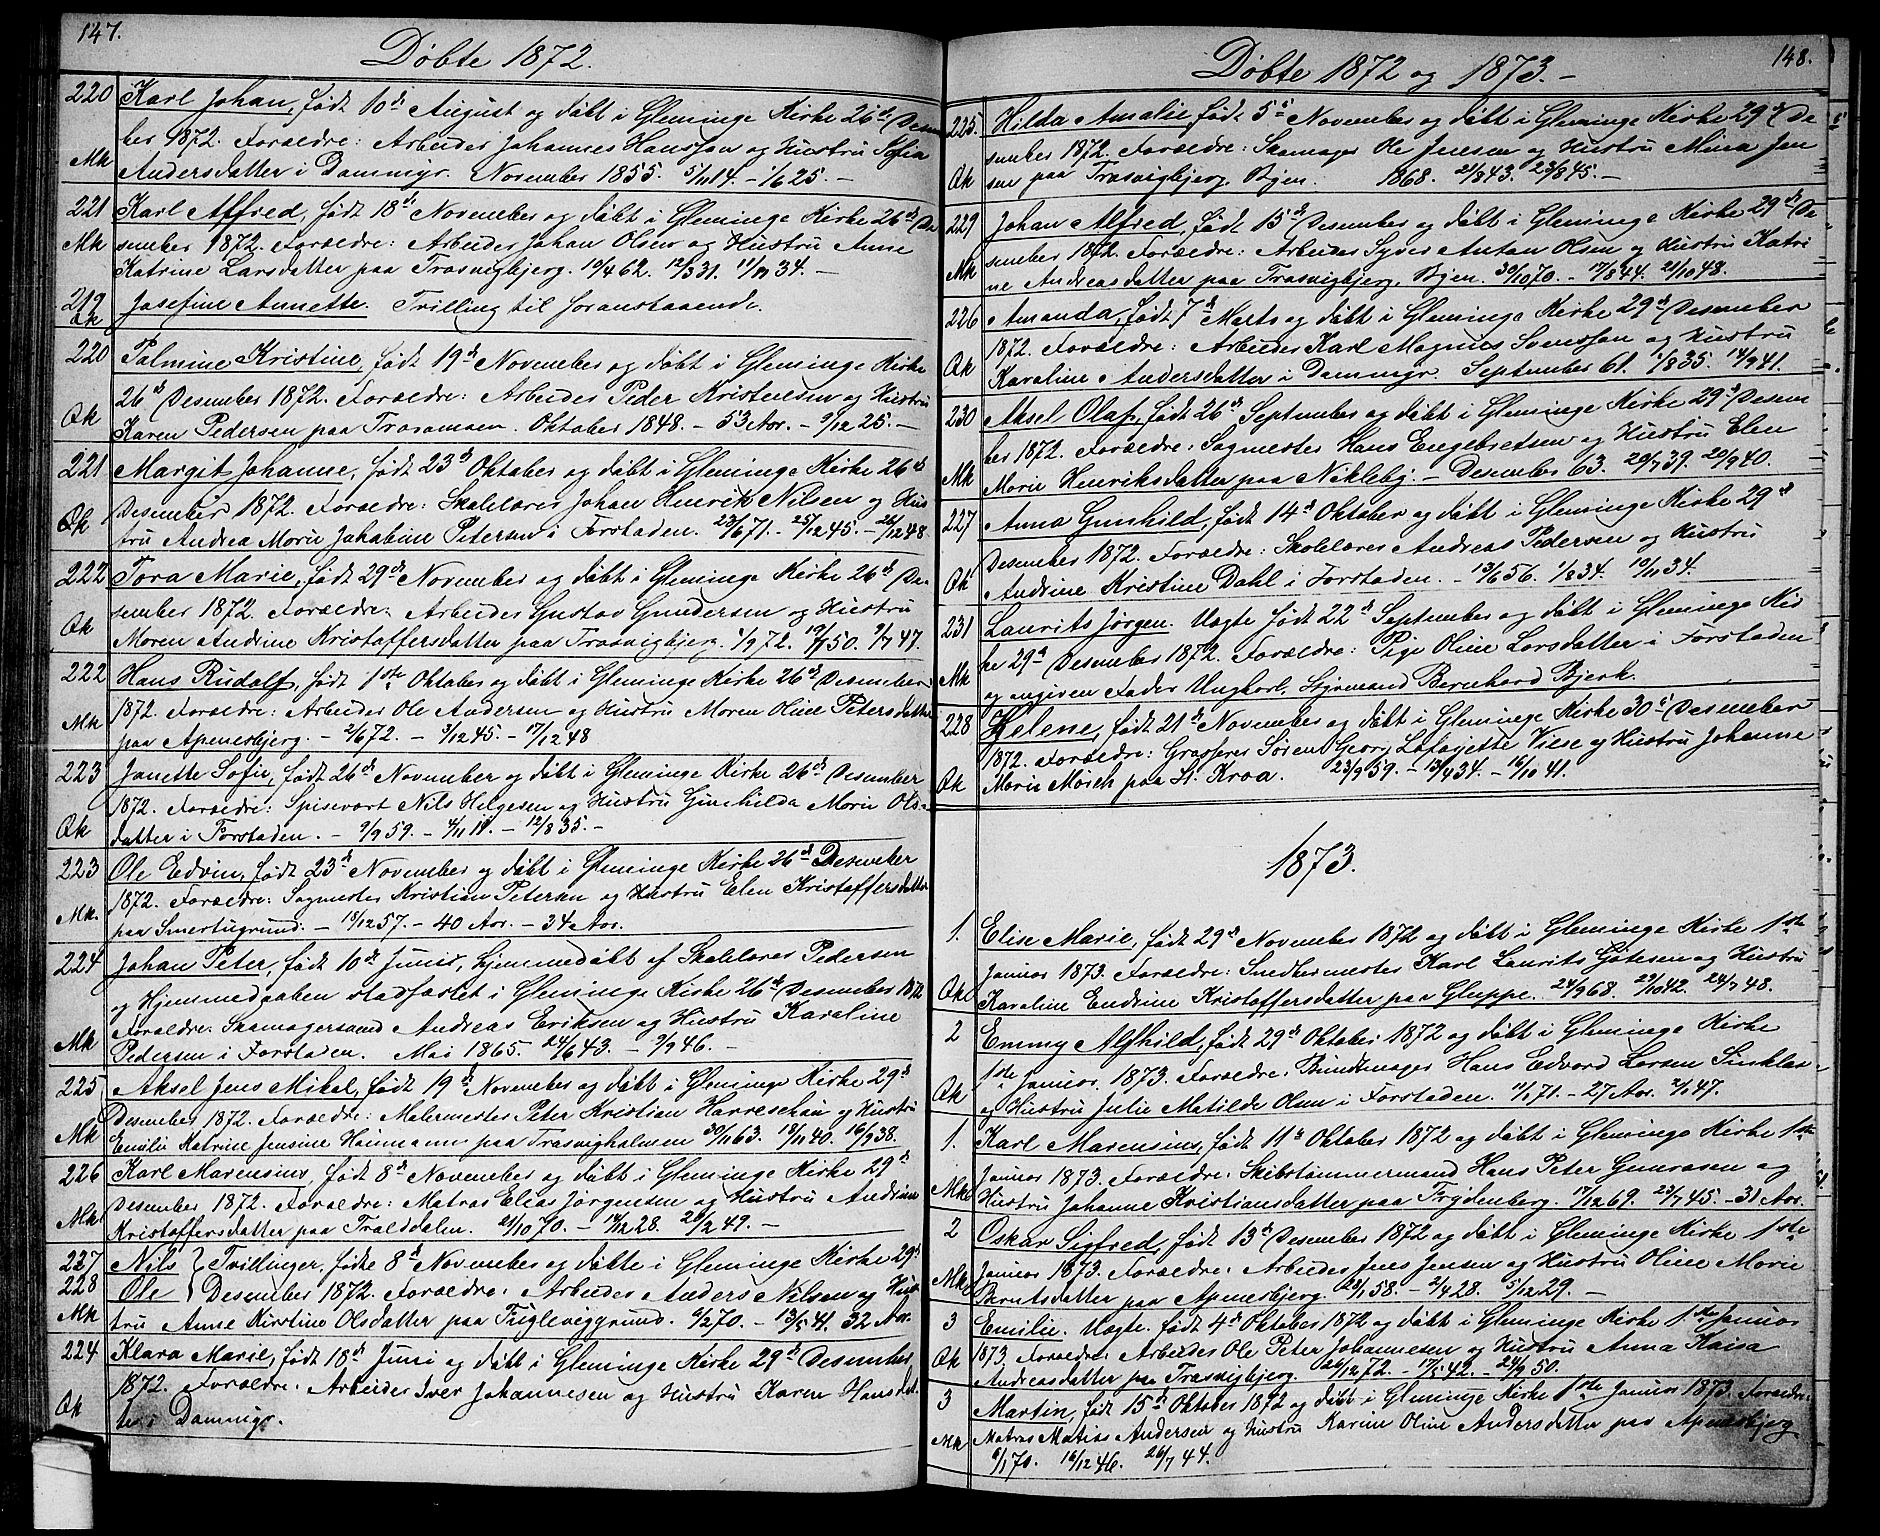 147.
Döbte 1872.
220 Karl Johan, födt 10de August og döbt i Gleminge Kirke 26de Desem
ber 1872. Forældre: Arbeider Johannes Hansson og Hustru Sofia
Mk Andersdatter i Dammyr. November 1855. 5/11 14. – 1/6 25. –
221 Karl Alfred, födt 18de November og döbt i Gleminge Kirke 26de De
Mk sember 1872. Forældre: Arbeider Johan Olsen og Hustru Anne
Katrine Larsdatter paa Trosvigbjerg. 10/4 62. 12/3 31. 11/11 34. –
219 Josefine Annette. Tvilling til foranstaaende.
Qk
220 Palmine Kristine, födt 19de November og döbt i Gleminge Kirke
26de Desember 1872. Forældre: Arbeider Peder Kristensen og Hustru
Qk Karen Pedersen paa Traraasen. Oktober 1848. – 53 Aar. – 9/12 25. –
221 Margit Johanne, födt 23de Oktober og döbt i Gleminge Kirke 26de
Qk Desember 1872. Forældre: Skolelærer Johan Henrik Nilsen og Hus
tru Andrea Marie Jakobine Petersen i Forstaden. 23/6 71. – 25/12 45. – 26/12 48.
222 Tora Marie, födt 29de November og döbt i Gleminge Kirke 26de De
sember 1872. Forældre: Arbeider Gustav Gundersen og Hustru
Qk Maren Andrine Kristoffersdatter paa Trosvigbjerg. 4/9 72. 19/7 50. 9/7 47.
222 Hans Rudolf, födt 1ste Oktober og döbt i Gleminge Kirke 26de Desember
1872. Forældre: Arbeider Ole Andersen og Hustru Maren Oline Petersdatter
Mk paa Apenesbjerg. – 2/6 72. – 9/12 45. – 17/12 48
223 Janette Sofie, födt 26de November og döbt i Gleminge Kirke 26de Desember
1872. Forældre: Spisevært Nils Helgesen og Hustru Gunhilda Marie Ols-
Qk datter i Forstaden. – 9/9 59. – 4/11 18. – 12/8 35. –
223 Ole Edvin, födt 23de November og döbt i Gleminge Kirke 26de Desember
1872. Forældre: Sagmester Kristian Petersen og Hustru Elen Kristoffersdatter
Mk. paa Smertugrund. – 15/12 57. – 40 Aar. – 34 Aar.
224 Johan Peter, födt 10de Juni, hjemmedöbt af Skolelærer Pedersen
og Hjemmedaaben stadfæstet i Gleminge Kirke 26de Desember 1872
Forældre: Skomagersvend Andreas Eriksen og Hustru Karoline
Mk Pedersen i Forstaden. Mai 1865. 24/6 43. – 9/9 46. –
225 Aksel Jens Mikal, födt 19de November og döbt i Gleminge Kirke 29de
Mk Desember 1872. Forældre: Malermester Peter Kristian Harreschau og Hustru
Emilie Katrine Jensine Haumann paa Trosvigholmen 30/11 63. 18/11 40. 16/9 38.
226 Karl Marensius, födt 8de November og döbt i Gleminge Kirke 29de
Mk Desember 1872. Forældre: Matros Elias Jørgensen og Hustru Andrine
Kristoffersdatter paa Træddalen. 21/10 70. – 14/12 28. 20/2 49. –
227 Nils } Tvillinger, födte 8de November og döbte i Gleminge Kirke 29de
228 Ole } Desember 1872. Forældre: Arbeider Anders Nilsen og Hus
Mk tru Anne Kirstine Olsdatter paa Fuglevitggrund. 6/2 70. – 13/5 41. 32 Aar.
224 Klara Marie, födt 18de Juni og döbt i Gleminge Kirke 29de Desember
1872. Forældre: Arbeider Iver Johannesen og Hustru Karen Hansdat
Qk ter i Dammyr.
148.
Döbte 1872 og 1873. –
225. Hilda Amalie, födt 5te November og döbt i Gleminge Kirke 29de De
sember 1872. Forældre: Skomager Ole Jensen og Hustru Mina Jen
Qk sen paa Trosvigbjerg, Byen. 1868. 2/8 43. 23/8 45. –
229 Johan Alfred, födt 15de Desember og döbt i Gleminge Kirke 29de De-
sember 1872. Forældre: Arbeider Syver Anton Olsen og Hustru Katri
Mk ne Andreasdatter paa Trosvigbjerg, Byen. 30/10 70. – 17/8 44. 21/10 48.
226 Amanda, födt 7de Marts og döbt i Gleminge Kirke 29de Desember
1872. Forældre: Arbeider Karl Magnus Svensson og Hustru
Qk Karoline Andersdatter i Dammyr. September 61. 1/8 35. 14/9 41.
230 Aksel Olaf, födt 26de September og döbt i Gleminge Kirke 29de Desem
ber 1872. Forældre: Sagmester Hans Engebretsen og Hustru Elen
Mk Marie Henriksdatter paa Nikleby. – Desember 63. 20/7 39. 20/9 40.
227 Anna Gunhild, födt 14de Oktober og döbt i Gleminge Kirke 29de
Desember 1872. Forældre: Skolelærer Andreas Pedersen og Hustru
Qk Andrine Kristine Dahl i Forstaden. – 13/6 56. 1/8 34. 10/11 34.
231 Laurits Jörgen. Uægte födt 22de September og döbt i Gleminge Kir
ke 29de Desember 1872. Forældre: Pige Oline Larsdatter i Forstaden
Mk og angiven Fader Ungkarl, Styrmand Bernhard Bjerk.
228 Helene, födt 21de November og döbt i Gleminge Kirke 30te Desember
1872. Forældre: Grosserer Sören Georg Lafayette Wiese og Hustru Johanne
Qk Marie Mörch paa St. Kroa. 23/9 59. – 13/4 34. – 16/10 41.
1873.
1. Elise Marie, födt 29de November 1872 og döbt i Gleminge Kirke 1ste
Januar 1873. Forældre: Smedhermester Karl Laurits Götesen og Hustru
Qk Karoline Endrine Kristoffersdatter paa Gluppe. 24/9 68. 29/10 42. 24/7 48.
2 Emmy Alfhild, födt 29de Oktober 1872 og döbt i Gleminge Kirke
1ste Januar 1873. Forældre: Bundtmager Hans Edvard Larsen Sinklar
Qk og Hustru Julie Matilde Olsen i Forstaden. 11/1 71. – 27 Aar. 2/1 47.
1. Karl Marensius, födt 11te Oktober 1872 og döbt i Gleminge Kirke 1ste
Januar 1873. Forældre: Skibstömmermand Hans Peter Gunrosen og
Mk Hustru Johanne Kristiansdatter paa Frydenberg. 17/12 69. 23/7 45. – 31 Aar.
2 Oskar Sigfred, födt 13de Desember 1872 og döbt i Gleminge Kirke 1ste
Mk Januar 1873. Forældre: Arbeider Jens Jensen og Hustru Oline Marie
Berntsdatter paa Apenesbjerg. 28/1 58. – 2/4 28. 5/12 29. –
3 Emilie. Uægte. födt 4de Oktober 1872 og döbt i Gleminge Kirke 1ste Januar
Qk 1873. Forældre: Arbeider Ole Peter Johannesen og Hustru Anna Kaisa
Andreasdatter paa Trosvigbjerg. 26/12 72. – 17/5 42. – 24/9 50.
3 Martin, födt 15de Oktober 1872 og döbt i Gleminge Kirke 1ste Januar 1873. Forældre:
Mk Matros Matias Andersen og Hustru Karine Oline Andersdatter paa Apenesbjerg
6/1 70. 16/12 46. 26/7 44.